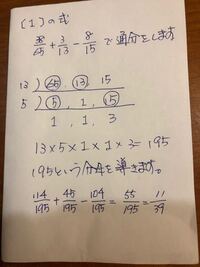 (1)の式
38/65 + 3/13 - 8/15 で通分をします
13 ) 65 13 15
5 ) 5 , 1 , 15
1 , 1 , 3
13 × 5 × 1 × 1 × 3 = 195
195という分母を導きます。
114/195 + 45/195 - 104/195 = 55/195 = 11/39